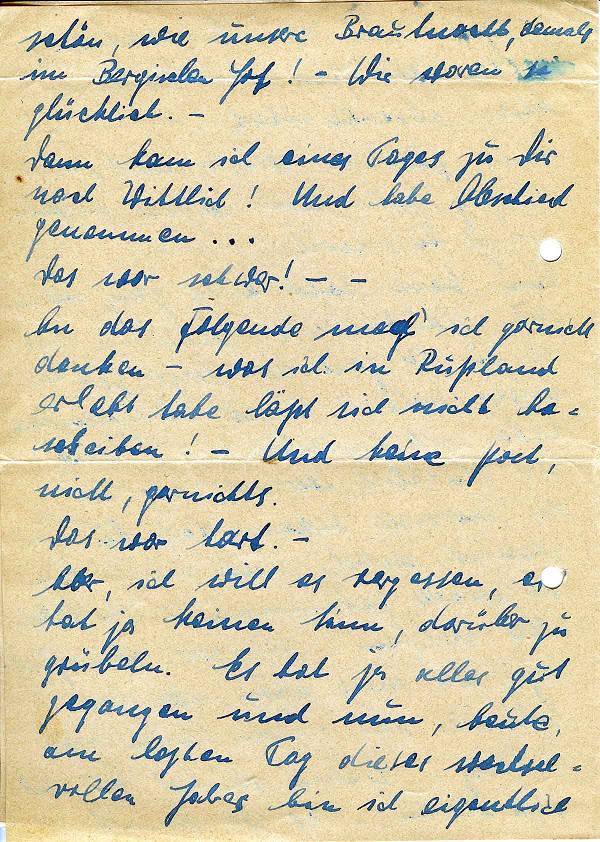 schön, wie unsre Brautnacht, damals
im Bergischen Hof! – Wie waren
glücklich. –
Dann kam ich eines Tages zu Dir
nach Wittlich! Und habe Abschied
genommen ...
Das war schwer! – –
An das Folgende mag ich garnicht
denken – was ich in Rußland
erlebt habe läßt sich nicht be=
schreiben! – Und keine Post,
nicht, garnichts.
Das war hart. –
Aber, ich will es vergessen, es
hat ja keinen Sinn, darüber zu
grübeln. Es hat ja alles gut
gegangen und nun, heute,
am letzten Tag dieses wechsel=
vollen Jahres bin ich eigentlich